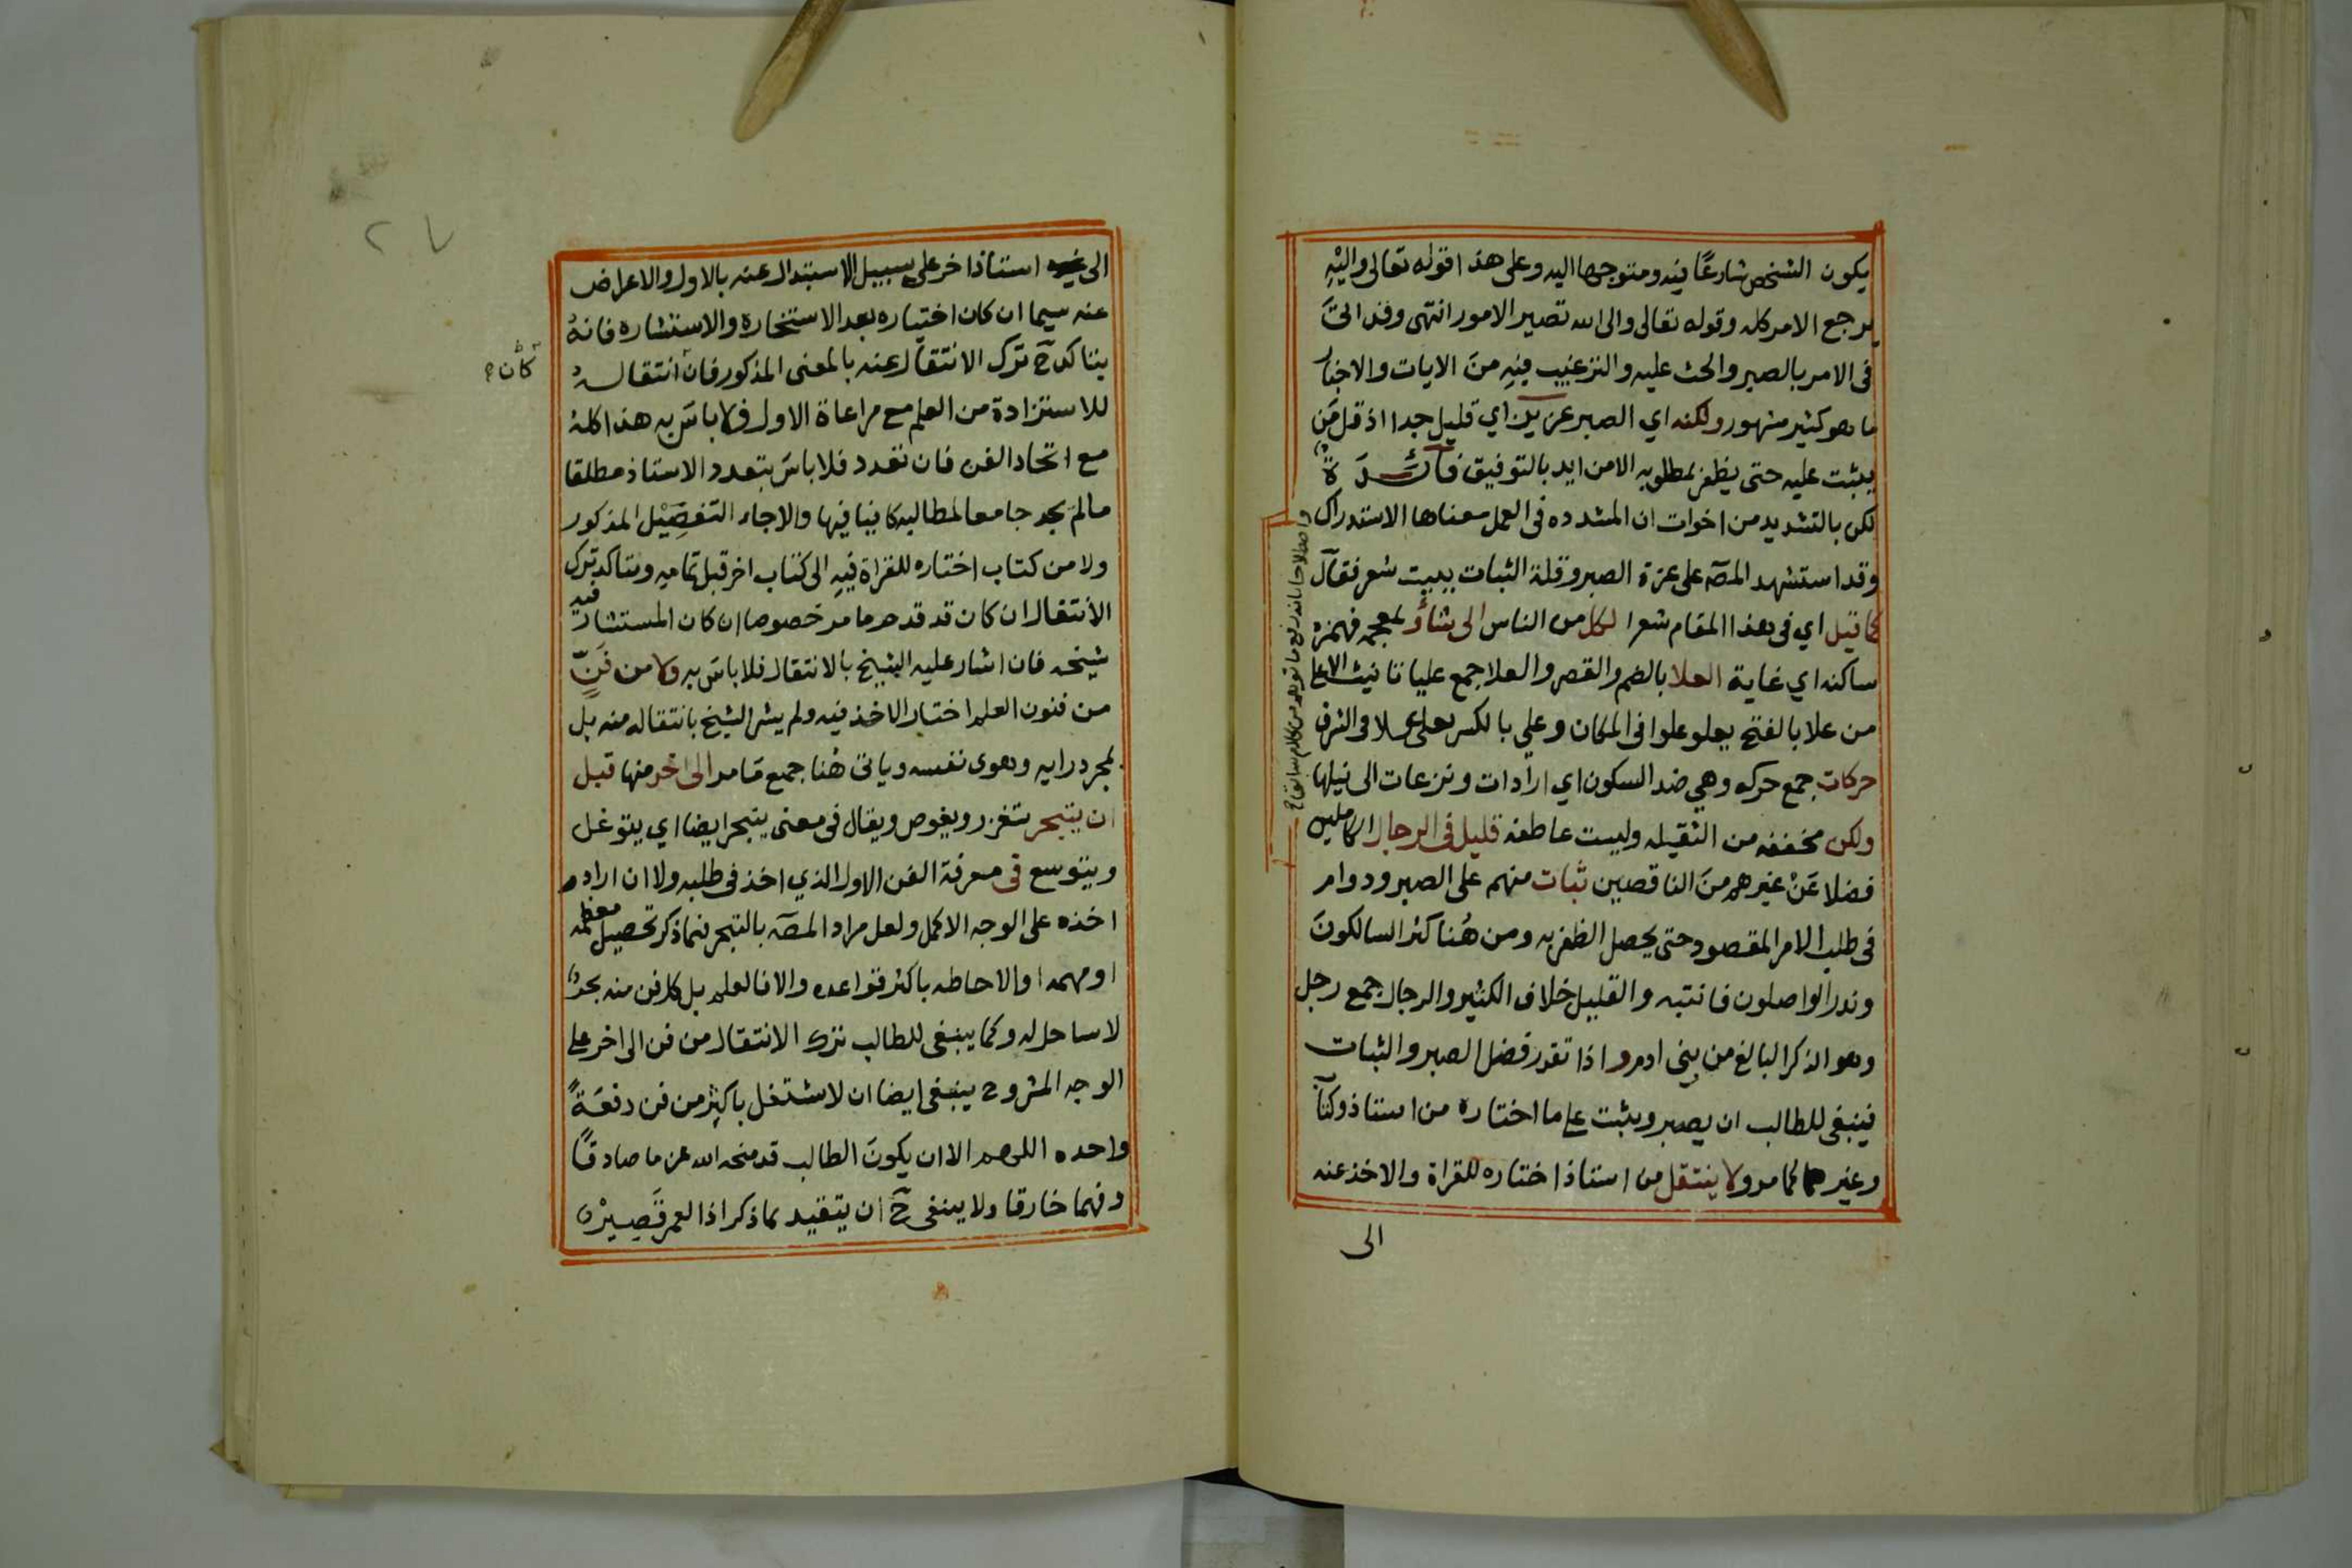 يكون الشخص شارعًا فيه ومتوجها اليه وعلى هذا قوله تعالى واليْهِ
يرجع الامر كله وقوله تعالى والى الله تصير الامور انتهى وقد اتىَ
فى الامر بالصبر والحث عليه والترغيب فيهِ منَ الايات والاخبار
ما هو كثير مشهور ولكنه اي الصبر عزيز اي قليل جدا اذ قل مَن
يثبت عليه حتى يظفر بمطلوبه الا من ايد بالتوفيق فائدة
لكن بالتشديد من اخوات ان المشدده فى العمل معناها الاستدراك
وقد استشهد المصۤ على عزة الصبر وقلة الثبات ببيت شعر فقال
كما قيل اي فى هذا المقام شعرا لكل من الناس الى شأوٍ لمعجمه فهمزه
ساكنه اي غاية العلا بالضم والقصر والعلا جمع عليا تانيث الاعلى
من علا بالفتح يعلو علوا فى المكان وعلي بالكسر يعلى علا فى الشرف
حركات جمع حركه وهي ضد السكون اي ارادات ونزعات الى نيلها
ولكن مخففه من الثقيله وليست عاطفه قليل فى الرجال الكاملين
فضلا عَنْ غيرهم منَ الناقصين ثبات منهم على الصبر ودوام
فى طلب الامر المقصود حتى يحصل الظفر به ومن هُنا كثر السالكونَ
وندر الواصلون فانتبه والقليل خلاف الكثير والرجال جمع رجل
وهو الذكر البالغ من بني ادم واذا تقرر فضل الصبر والثبات
فينبغى للطالب ان يصبر ويثبت على ما اختاره من استاذ وكتاب
وغيرهما كما مر ولا ينتقل من استاذ اختاره للقراة والاخذ عنه
الى
الى استاذ اخر على سبيل الاستبدال عنه بالاول والاعراض
عنه سيما ان كان اختياره بعد الاستخارة والاستشاره فانهُ
يتاكد ح ترك الانتقال عنه بالمعنى المذكور فان انتقاله
كان
للاستزادة من العلم مع مراعاة الاول فلا باسَ به هذا كله
مع اتحاد الفن فان تعدد فلا باسَ بتعدد الاستاذ مطلقا
مالم يجد جامعا لمطالبه كافيا فيها والا جاء التفصِيْل المذكور
ولا من كتاب اختاره للقراة فيهِ الى كتاب اخر قبل تمامه ويتاكد ترك
الانتقال ان كان قد قدم ما مر خصوصا ان كان المستشار فيه
شيخه فان اشار عليه الشيخ بالانتقال فلا باسَ به ولا من فَنٍّ
من فنون العلم اختار الاخذ فيه ولم يشر الشيخ بانتقاله منه بل
لمجرد رايه وهوى نفسه وياتى هُنا جميع مَا مر الى اخر منها قبل
ان يتبحر يتغزر ويغوص ويقال فى معنى يتبحر ايضا اي يتوغل
ويتوسع فى معرفة الفن الاول الذي اخذ فى طلبه ولا ان اراد
اخذه على الوجه الاكمل ولعل مراد المصۤه بالتبحر فيما ذكر تحصيل معظمه
او مهمه او الاحاطه باكثر قواعده والا فالعلم بل كل فن منه بحر
لا ساحل له وكما ينبغى للطالب ترك الانتقال من فن الى اخر على
الوجه المشروح ينبغى ايضا ان لا يشتغل باكثر من فن دفعَةً
واحده اللهم الا ان يكونَ الطالب قد منحه الله عزما صادقًا
وفهما خارقا ولا ينبغى ح ان يتقيد بما ذكر اذ العمر قَصِيْر